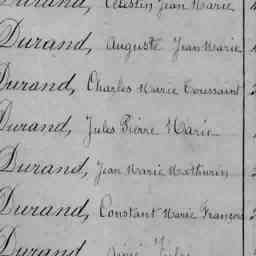 Durand, Célestin Jean Marie
Durand, Auguste Jean Marie
Durand, Charles Marie Toussaint
Durand, Jules Pierre Marie
Durand, Jean Marie Mathurin
Durand, Constant Marie François
Durand, Aimé Jules